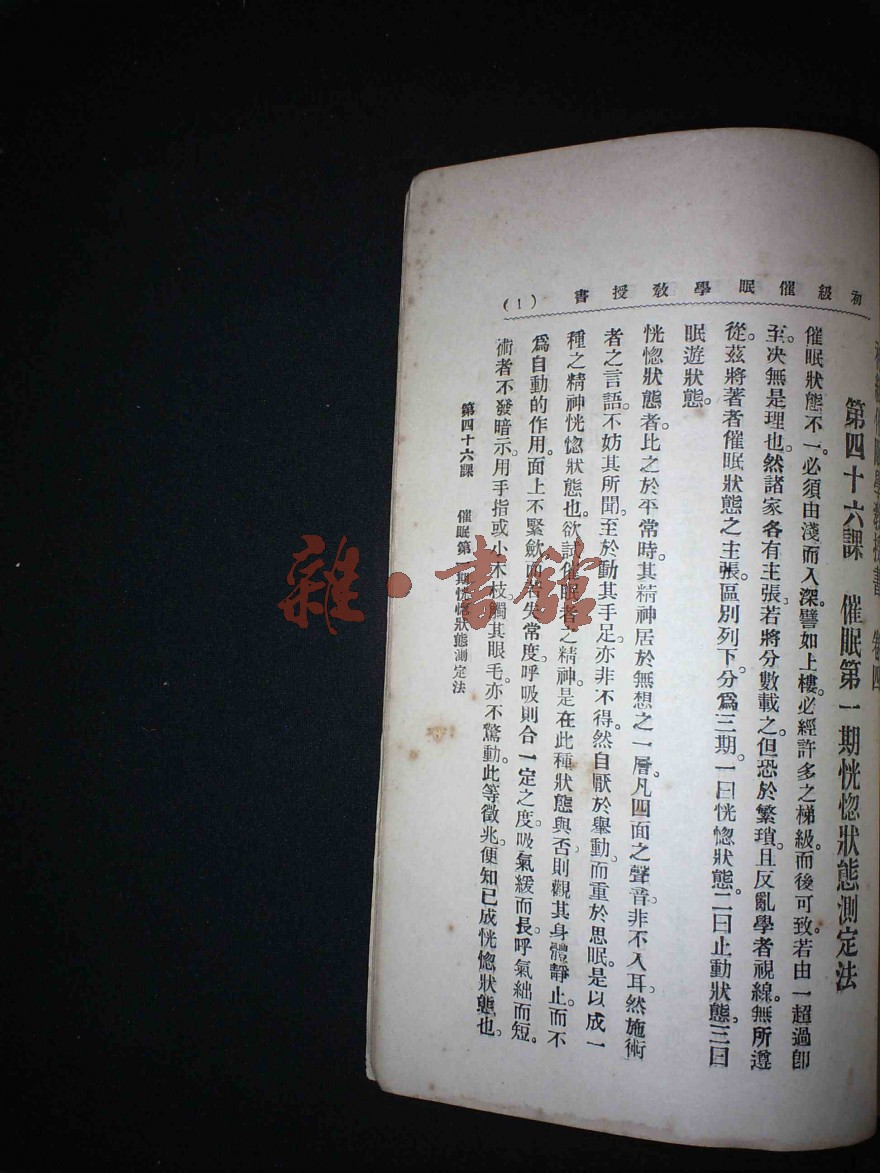 初級催眠學教授書 (1)
初級催眠學教授書 卷四
第四十六課 催眠第一期恍惚狀態測定法
催眠狀態不一。必須由淺而入深。譬如上樓。必經許多之梯級。而後可致。若由一超過卽
至。决無是理也。然諸家各有主張。若將分數載之。但恐於繁瑣。且反亂學者視線。無所遵
從。茲將著者催眠狀態之主張。區別列下。分爲三期。一曰恍惚狀態。二曰止動狀態。三曰
眠遊狀態。
恍惚狀態者。比之於平常時。其精神居於無想之一層。凡四面之聲音。非不入耳。然施術
者之言語。不妨其所聞。至於動其手足。亦非不得。然自厭於舉動。而重於思眠。是以成一
種之精神恍惚狀態也。欲試催眠者之精神。是在此種狀態與否。則觀其身體靜止。而不
爲自動的作用。面上不緊歛。而若失常度。呼吸則合一定之度。吸氣緩而長。呼氣絀而短。
術者不發暗示。用手指或小木枝。觸其眼毛。亦不驚動。此等徵兆。便知已成恍惚狀態也。
第四十六課 催眠第一期恍惚狀態測定法
雜·書館